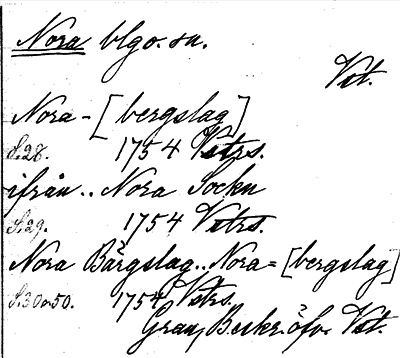 Nora blgo. sn.
Vst.
Nora-[bergslag]
S.28. 1754 Vstrs.
ifrån.. Nora Sockn
S.29. 1754 Vstrs.
Nora Bärgslag.. Nora=[bergslag]
S.30 o. 50. 1754 Vstrs.
Grau, Beskr. öfv. Vst.